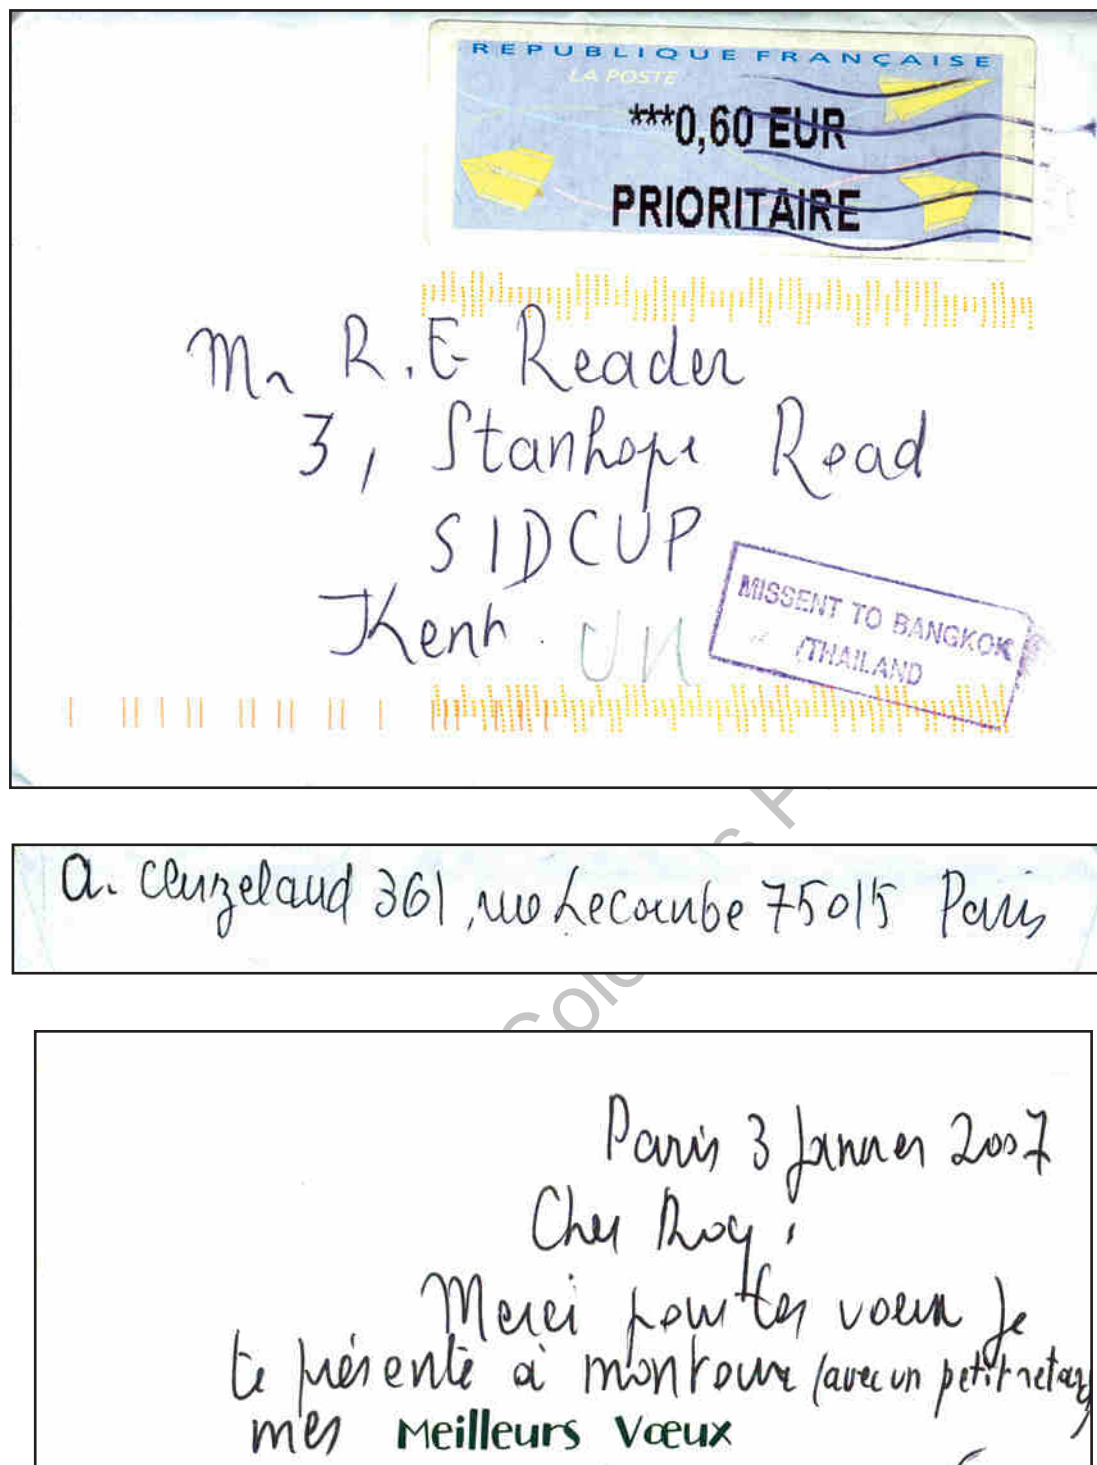 REPUBLIQUE FRANÇAISE
LA POSTE
***0,60 EUR
PRIORITAIRE
Mr R.E Reader
3, Stanhope Road
SIDCUP
Kent. UK
MISSENT TO BANGKOK
/THAILAND
a. Cluzelaud 361, rue Lecourbe 75015 Paris
Paris 3 Janvier 2007
Cher Roy,
Merci pour tes voeux je
te présente à mon tour (avec un petit retard
mes Meilleurs Vœux